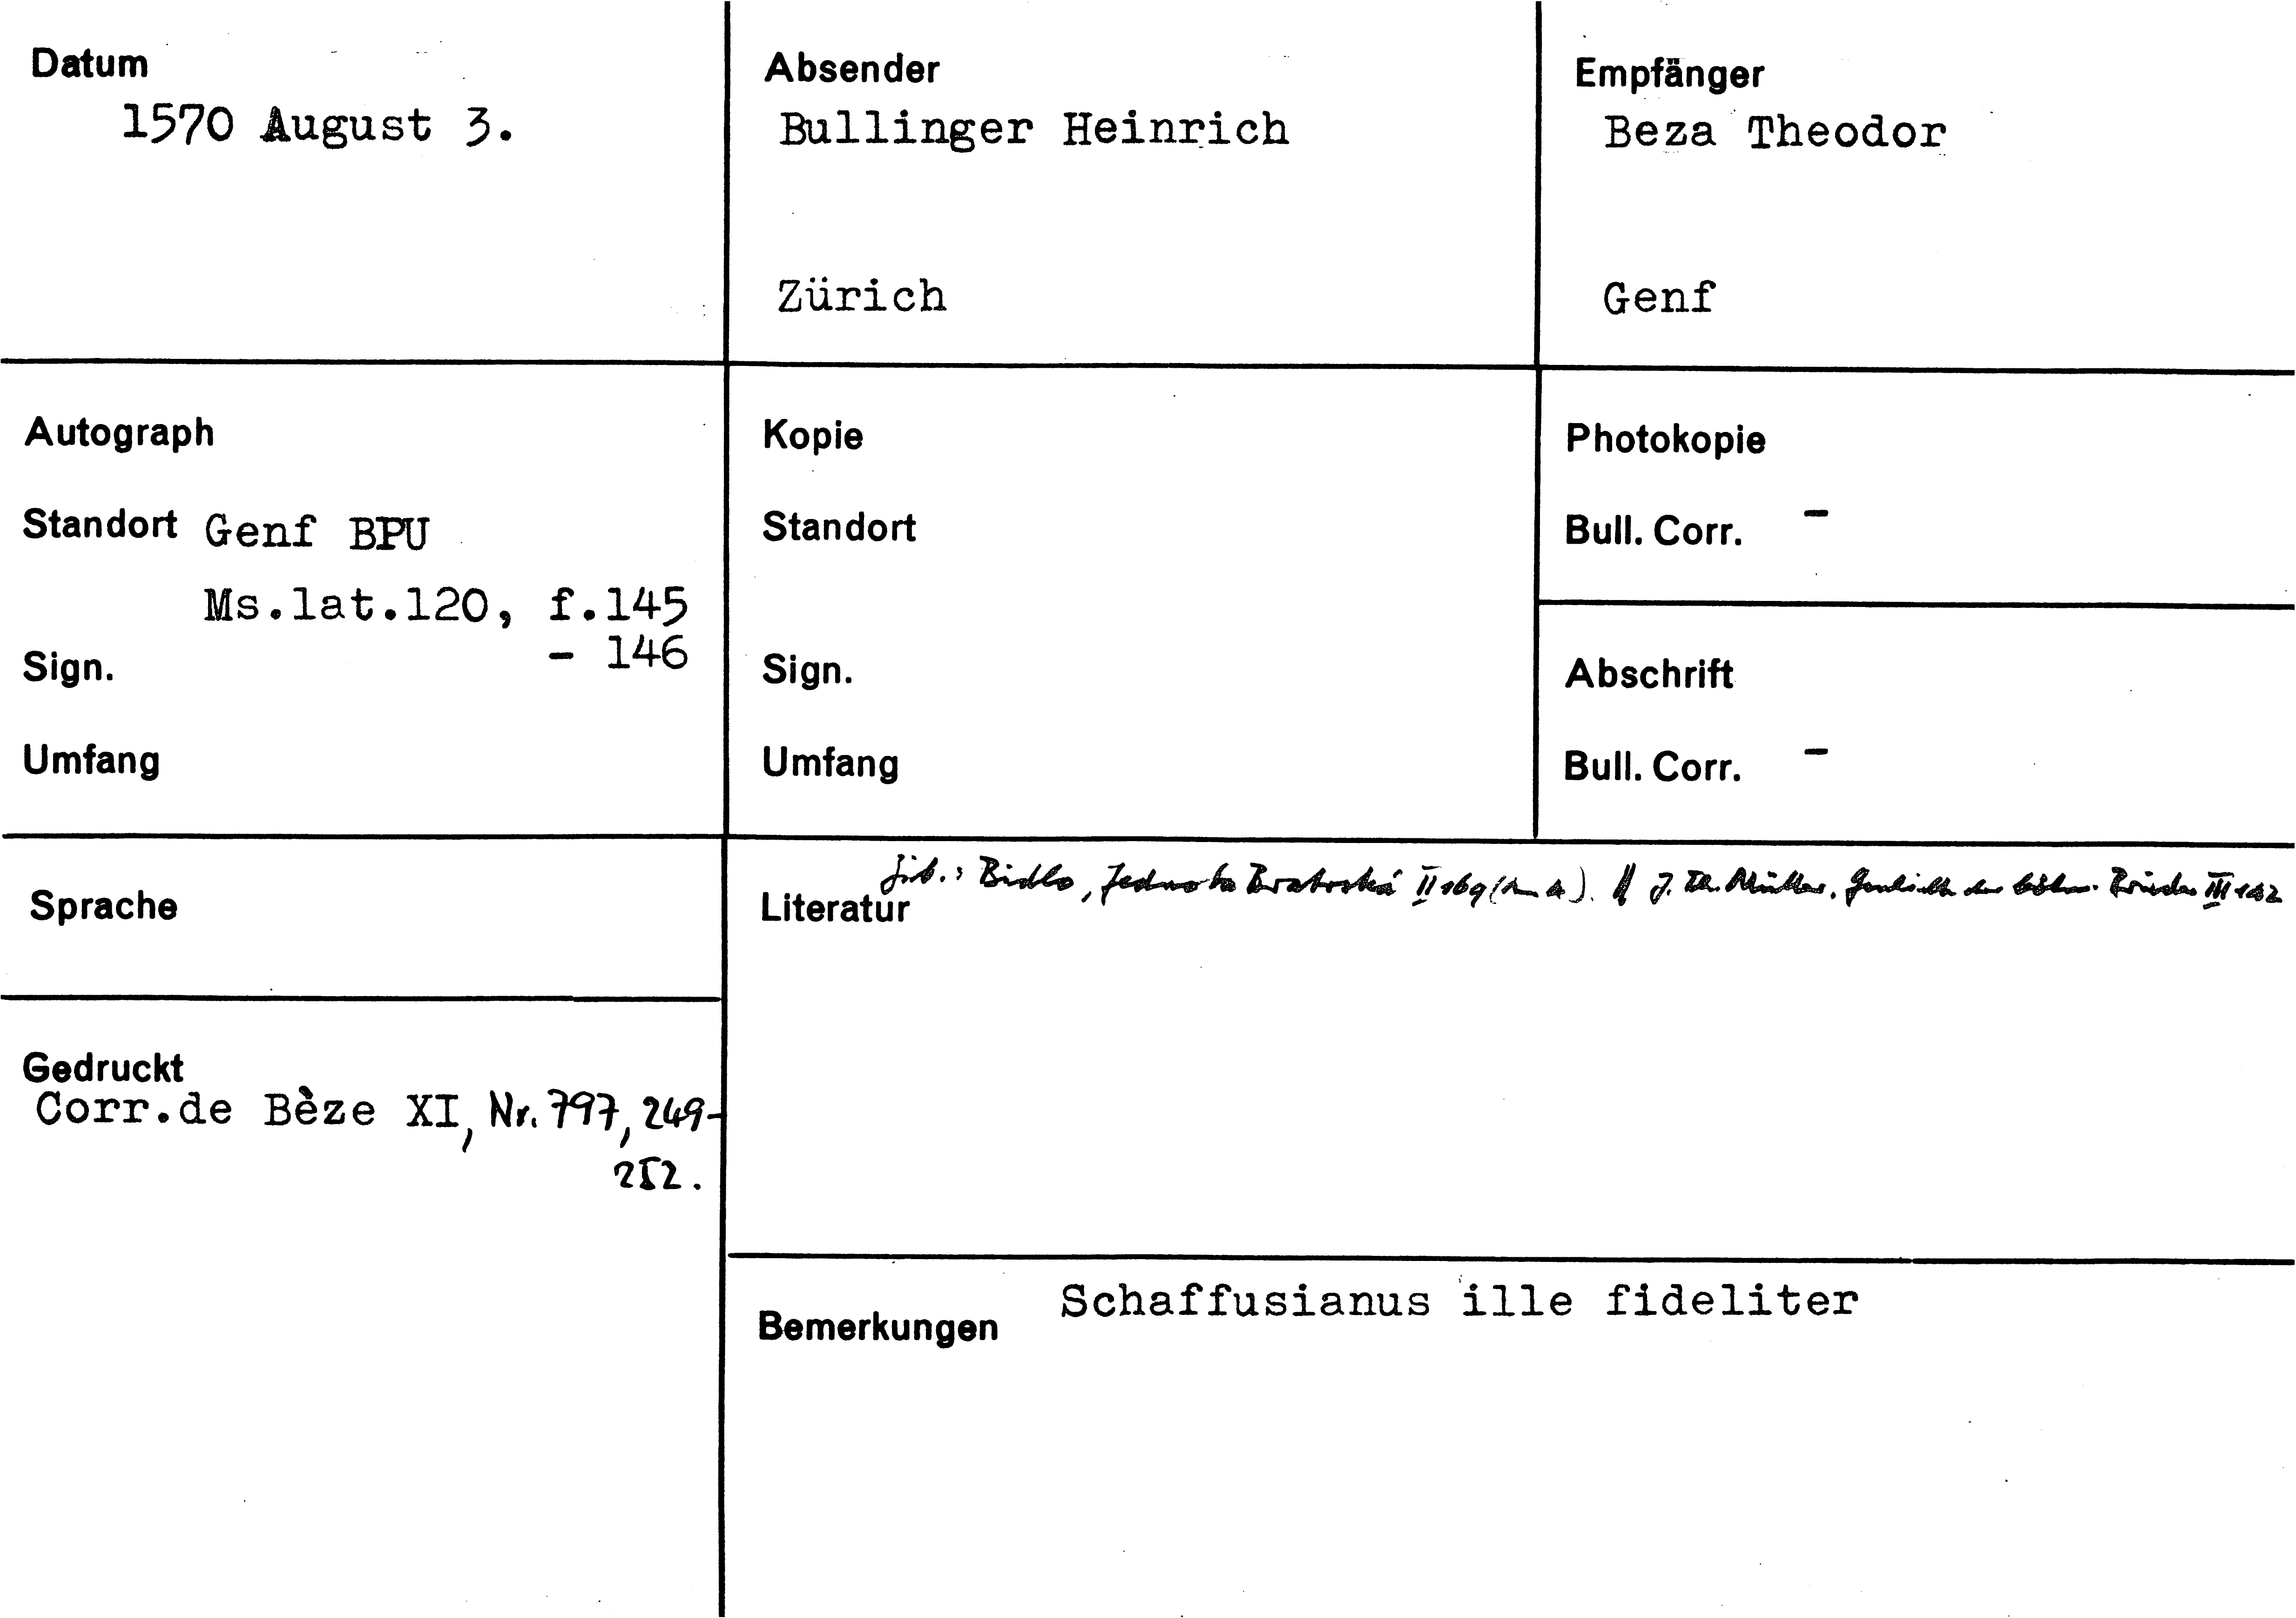 Datum
1570 August 3.
Absender
Bullinger Heinrich
Zürich
Empfänger
Beza Theodor
Genf
Autograph
Standort Genf BPU
Ms.lat.120, f.145
- 146
Sign.
Umfang
Kopie
Standort
Sign.
Umfang
Photokopie
Bull. Corr. -
Abschrift
Bull. Corr. -
Sprache
Gedruckt
Corr.de Bèze XI, Nr. 797, 249-
252.
Literatur
Bidlo, Jednota Bratrská II 169 // J. Th. Müller. Geschichte der böhm. Brüder III
Bemerkungen
Schaffusianus ille fideliter